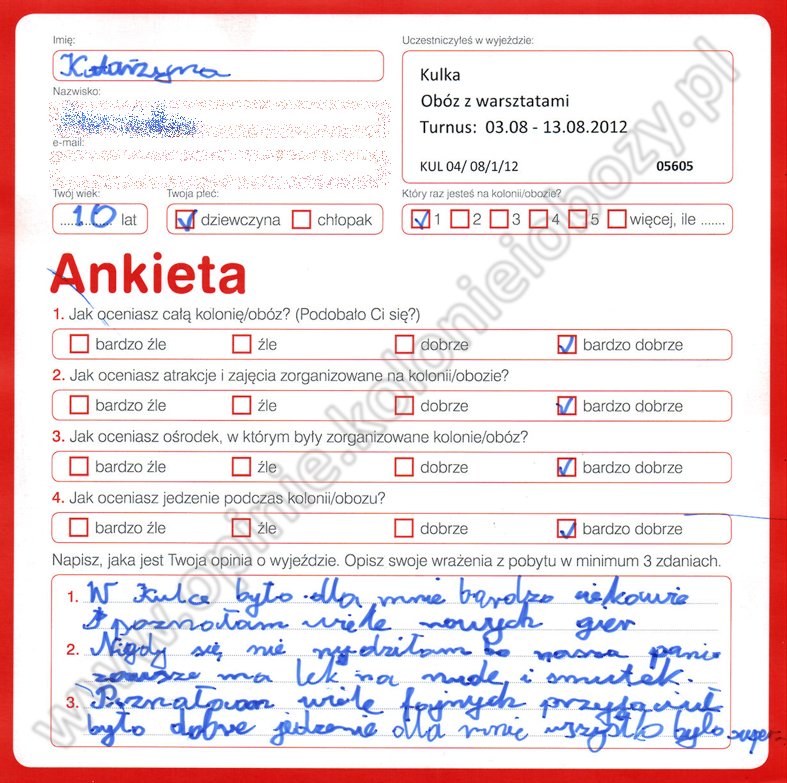 Imię:
Katarzyna
Uczestniczyłeś w wyjeździe:
Kulka
Obóz z warsztatami
Turnus: 03.08 - 13.08.2012
KUL 04/ 08/1/12 05605
Nazwisko:
e-mail:
Twój wiek:
10 lat
Twoja płeć:
dziewczyna chłopak
Który raz jesteś na kolonii/obozie?
1 2 3 4 5 więcej, ile .......
Ankieta
1. Jak oceniasz całą kolonię/obóz? (Podobało Ci się?)
bardzo źle źle dobrze bardzo dobrze
2. Jak oceniasz atrakcje i zajęcia zorganizowane na kolonii/obozie?
bardzo źle źle dobrze bardzo dobrze
3. Jak oceniasz ośrodek, w którym były zorganizowane kolonie/obóz?
bardzo źle źle dobrze bardzo dobrze
4. Jak oceniasz jedzenie podczas kolonii/obozu?
bardzo źle źle dobrze bardzo dobrze
Napisz, jaka jest Twoja opinia o wyjeździe. Opisz swoje wrażenia z pobytu w minimum 3 zdaniach.
1. W Kulce było dla mnie bardzo ciekawie
poznałam wiele nowych gier
2. Nigdy się nie nudziłam bo nasza pani
zawsze ma lek na nude i smutek.
3. Poznałam wiele fajnych przyjaciuł
było dobre jedzenie dla mnie wszystko było super
www.opinie.kolonieiobozy.pl